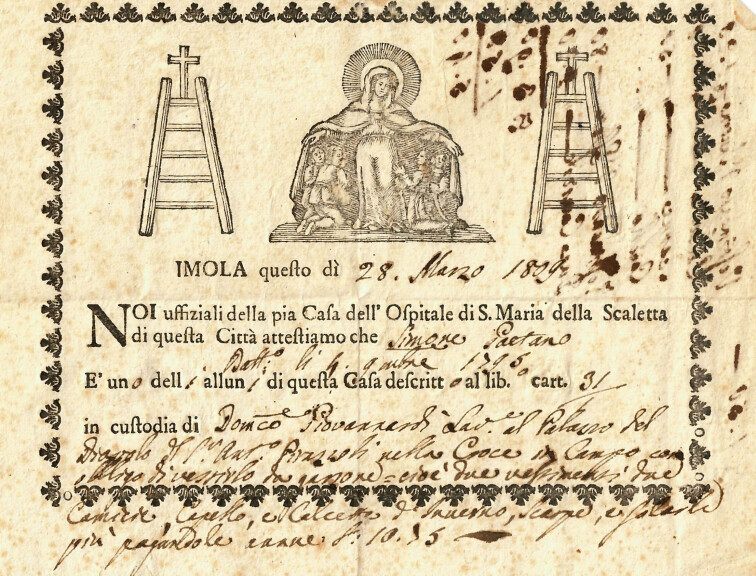 IMOLA questo dì 28. Marzo 1809
NOI uffiziali della pia Casa dell' Ospitale di S. Maria della Scaletta
di questa Città attestiamo che Simone Gaetano
Batt.º li 9.mbre 1795
E' uno delli allunni di questa Casa descritto al lib.º cart. 31
in custodia di Dom.co Giovannardi Lav.e al Palazzo del
Diavolo del Ant.º nella Croce in Campo con
obligo di vestirlo da garzone = cioè due vestimenti due
Camicie Capello, e Calcette d'Inverno, Scarpe, e
più pagandole annue 10.75